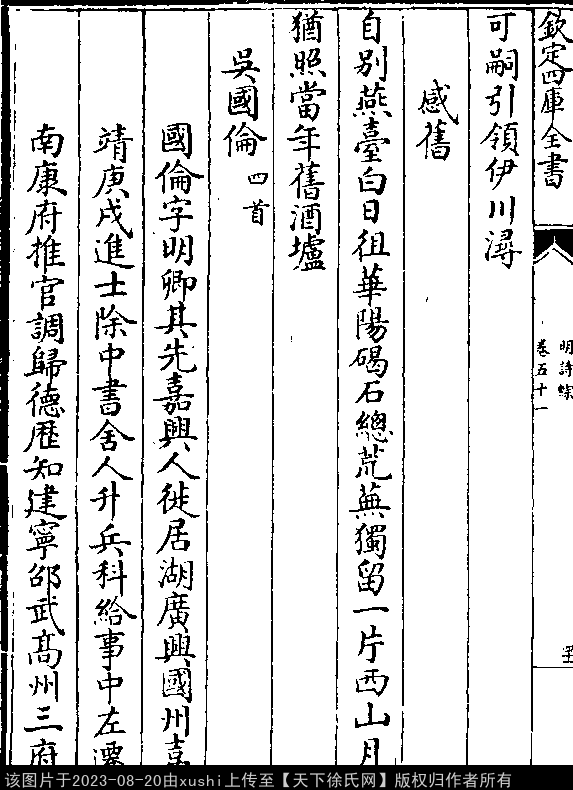 欽定四庫全書
明詩綜
卷五十一
可嗣引領伊川潯
感舊
自別燕臺白日徂華陽碣石總荒蕪獨留一片西山月
猶照當年舊酒壚
吳國倫四首
國倫字明卿其先嘉興人徙居湖廣興國州嘉
靖庚戌進士除中書舍人升兵科給事中左遷
南康府推官調歸德歷知建寧邵武高州三府
该图片于2023-08-20由xushi上传至【天下徐氏网】版权归作者所有